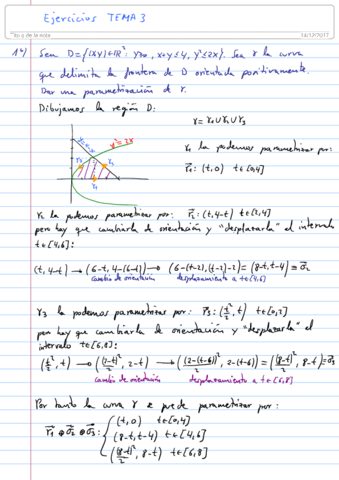 Ejercicios TEMA 3
Título de la nota
14/12/2017
1º) Sea D={(x,y)∈ℝ²: y≥0, x+y≤4, y²≤2x}. Sea γ la curva
que delimita la frontera de D orientada positivamente.
Dar una parametrización de γ.
Dibujamos la región D:
γ=γ₁∪γ₂∪γ₃
γ₁ la podemos parametrizar por:
r⃗₁: (t,0) t∈[0,4]
y=4-x
y²=2x
γ₃
γ₂
γ₁
γ₂ la podemos parametrizar por: r⃗₂: (t,4-t) t∈[2,4]
pero hay que cambiarla de orientación y "desplazarla" al intervalo
t∈[4,6]:
(t,4-t) → (6-t, 4-(6-t)) → (6-(t-2),(t-2)-2)=(8-t,t-4)≡σ⃗₂
cambio de orientación desplazamiento a t∈[4,6]
γ₃ la podemos parametrizar por: r⃗₃: (t²/2, t) t∈[0,2]
pero hay que cambiarla de orientación y "desplazarla" al
intervalo t∈[6,8]:
(t²/2, t) → ((2-t)²/2, 2-t) → ((2-(t-6))²/2, 2-(t-6))=((8-t)²/2, 8-t)≡σ⃗₃
cambio de orientación desplazamiento a t∈[6,8]
Por tanto la curva γ se puede parametrizar por:
r⃗₁⊕σ⃗₂⊕σ⃗₃: { (t,0) t∈[0,4]
(8-t,t-4) t∈[4,6]
((8-t)²/2, 8-t) t∈[6,8]